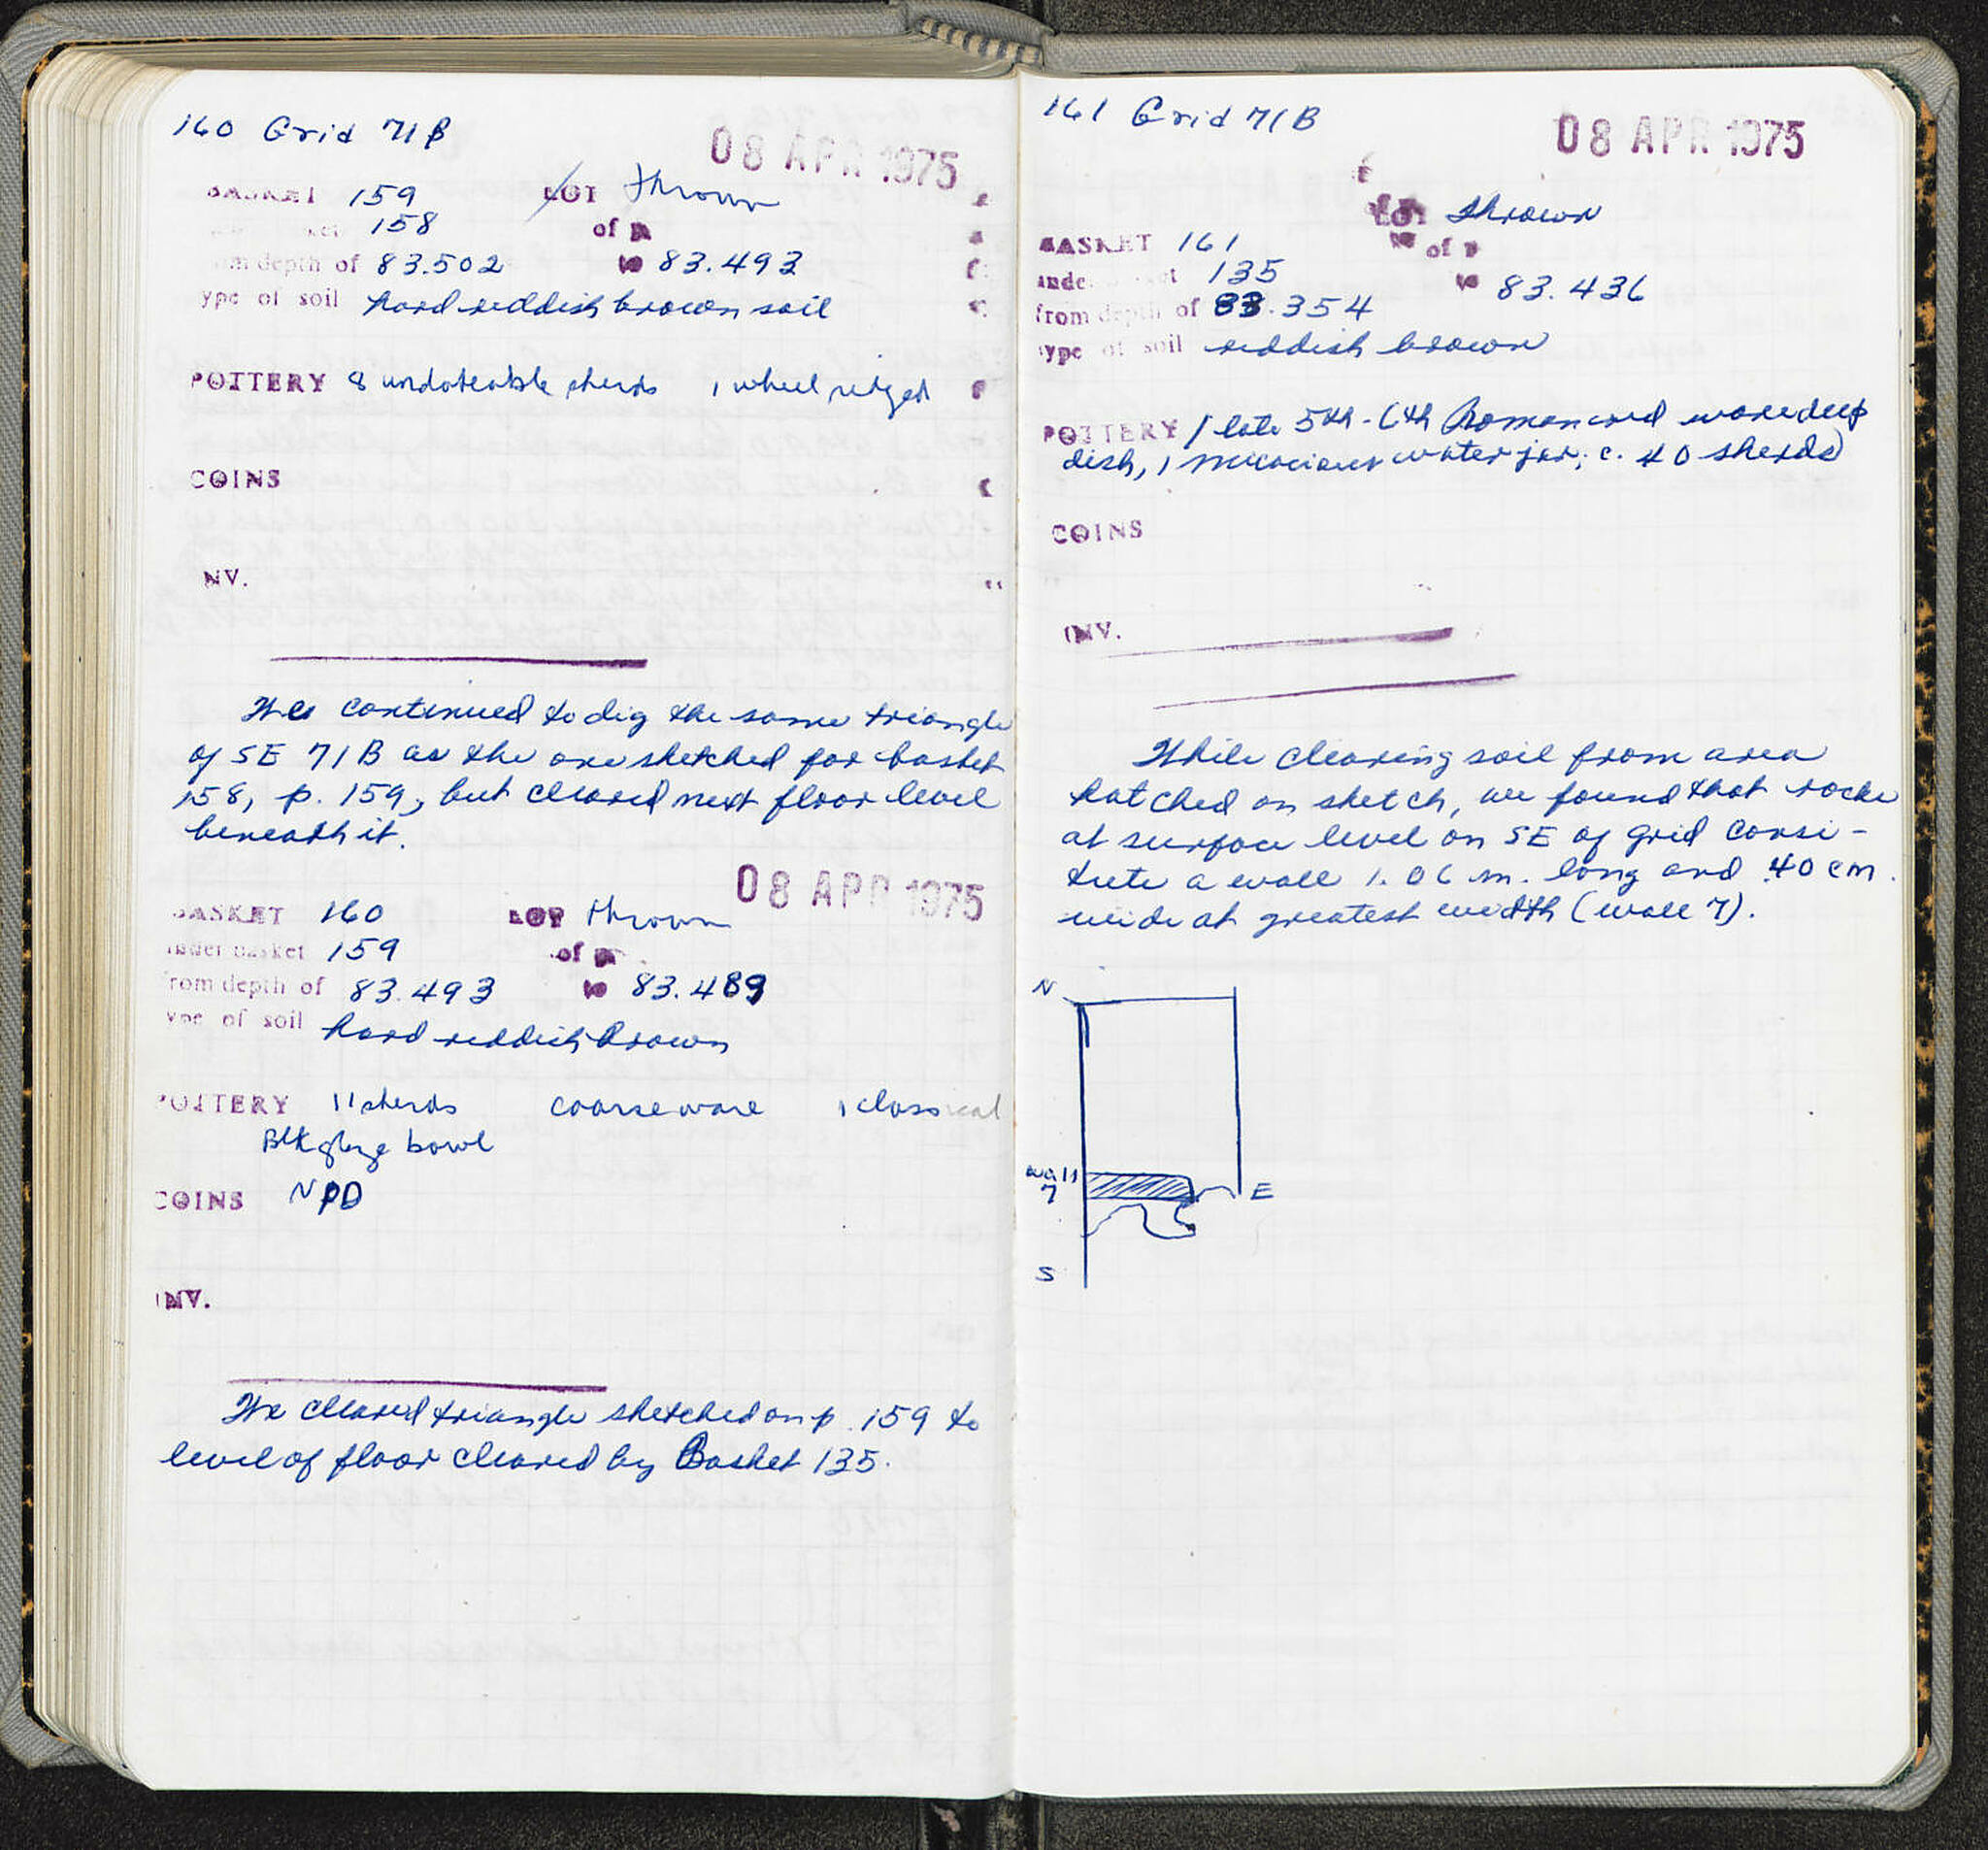 160 Grid 71B
08 APR 1975
BASKET 159 LOT thrown
158 of
om depth of 83.502 to 83.493
ype of soil hard reddish brown soil
POTTERY 8 undateable sherds 1 wheel ridged
COINS
NV.
We continued to dig the same triangle
of SE 71B as the one sketched for basket
158, p. 159, but cleared next floor level
beneath it.
08 APR 1975
BASKET 160 LOT thrown
under basket 159 of
from depth of 83.493 to 83.489
ype of soil hard reddish brown
POTTERY 11 sherds coarseware 1 classical
Blk glaze bowl
COINS NPD
INV.
We cleared triangle sketched on p. 159 to
level of floor cleared by Basket 135.
161 Grid 71B
08 APR 1975
LOT thrown
BASKET 161 of
unde 135
from depth of 83.354 to 83.436
type of soil reddish brown
POTTERY 1 late 5th-6th Roman ware deep
dish, 1 micaceous water jar; c. 40 sherds
COINS
INV.
While clearing soil from area
hatched on sketch, we found that rocks
at surface level on SE of grid consi-
tute a wall 1.06 m. long and .40 cm.
wide at greatest width (wall 7).
N
wall
7
E
S